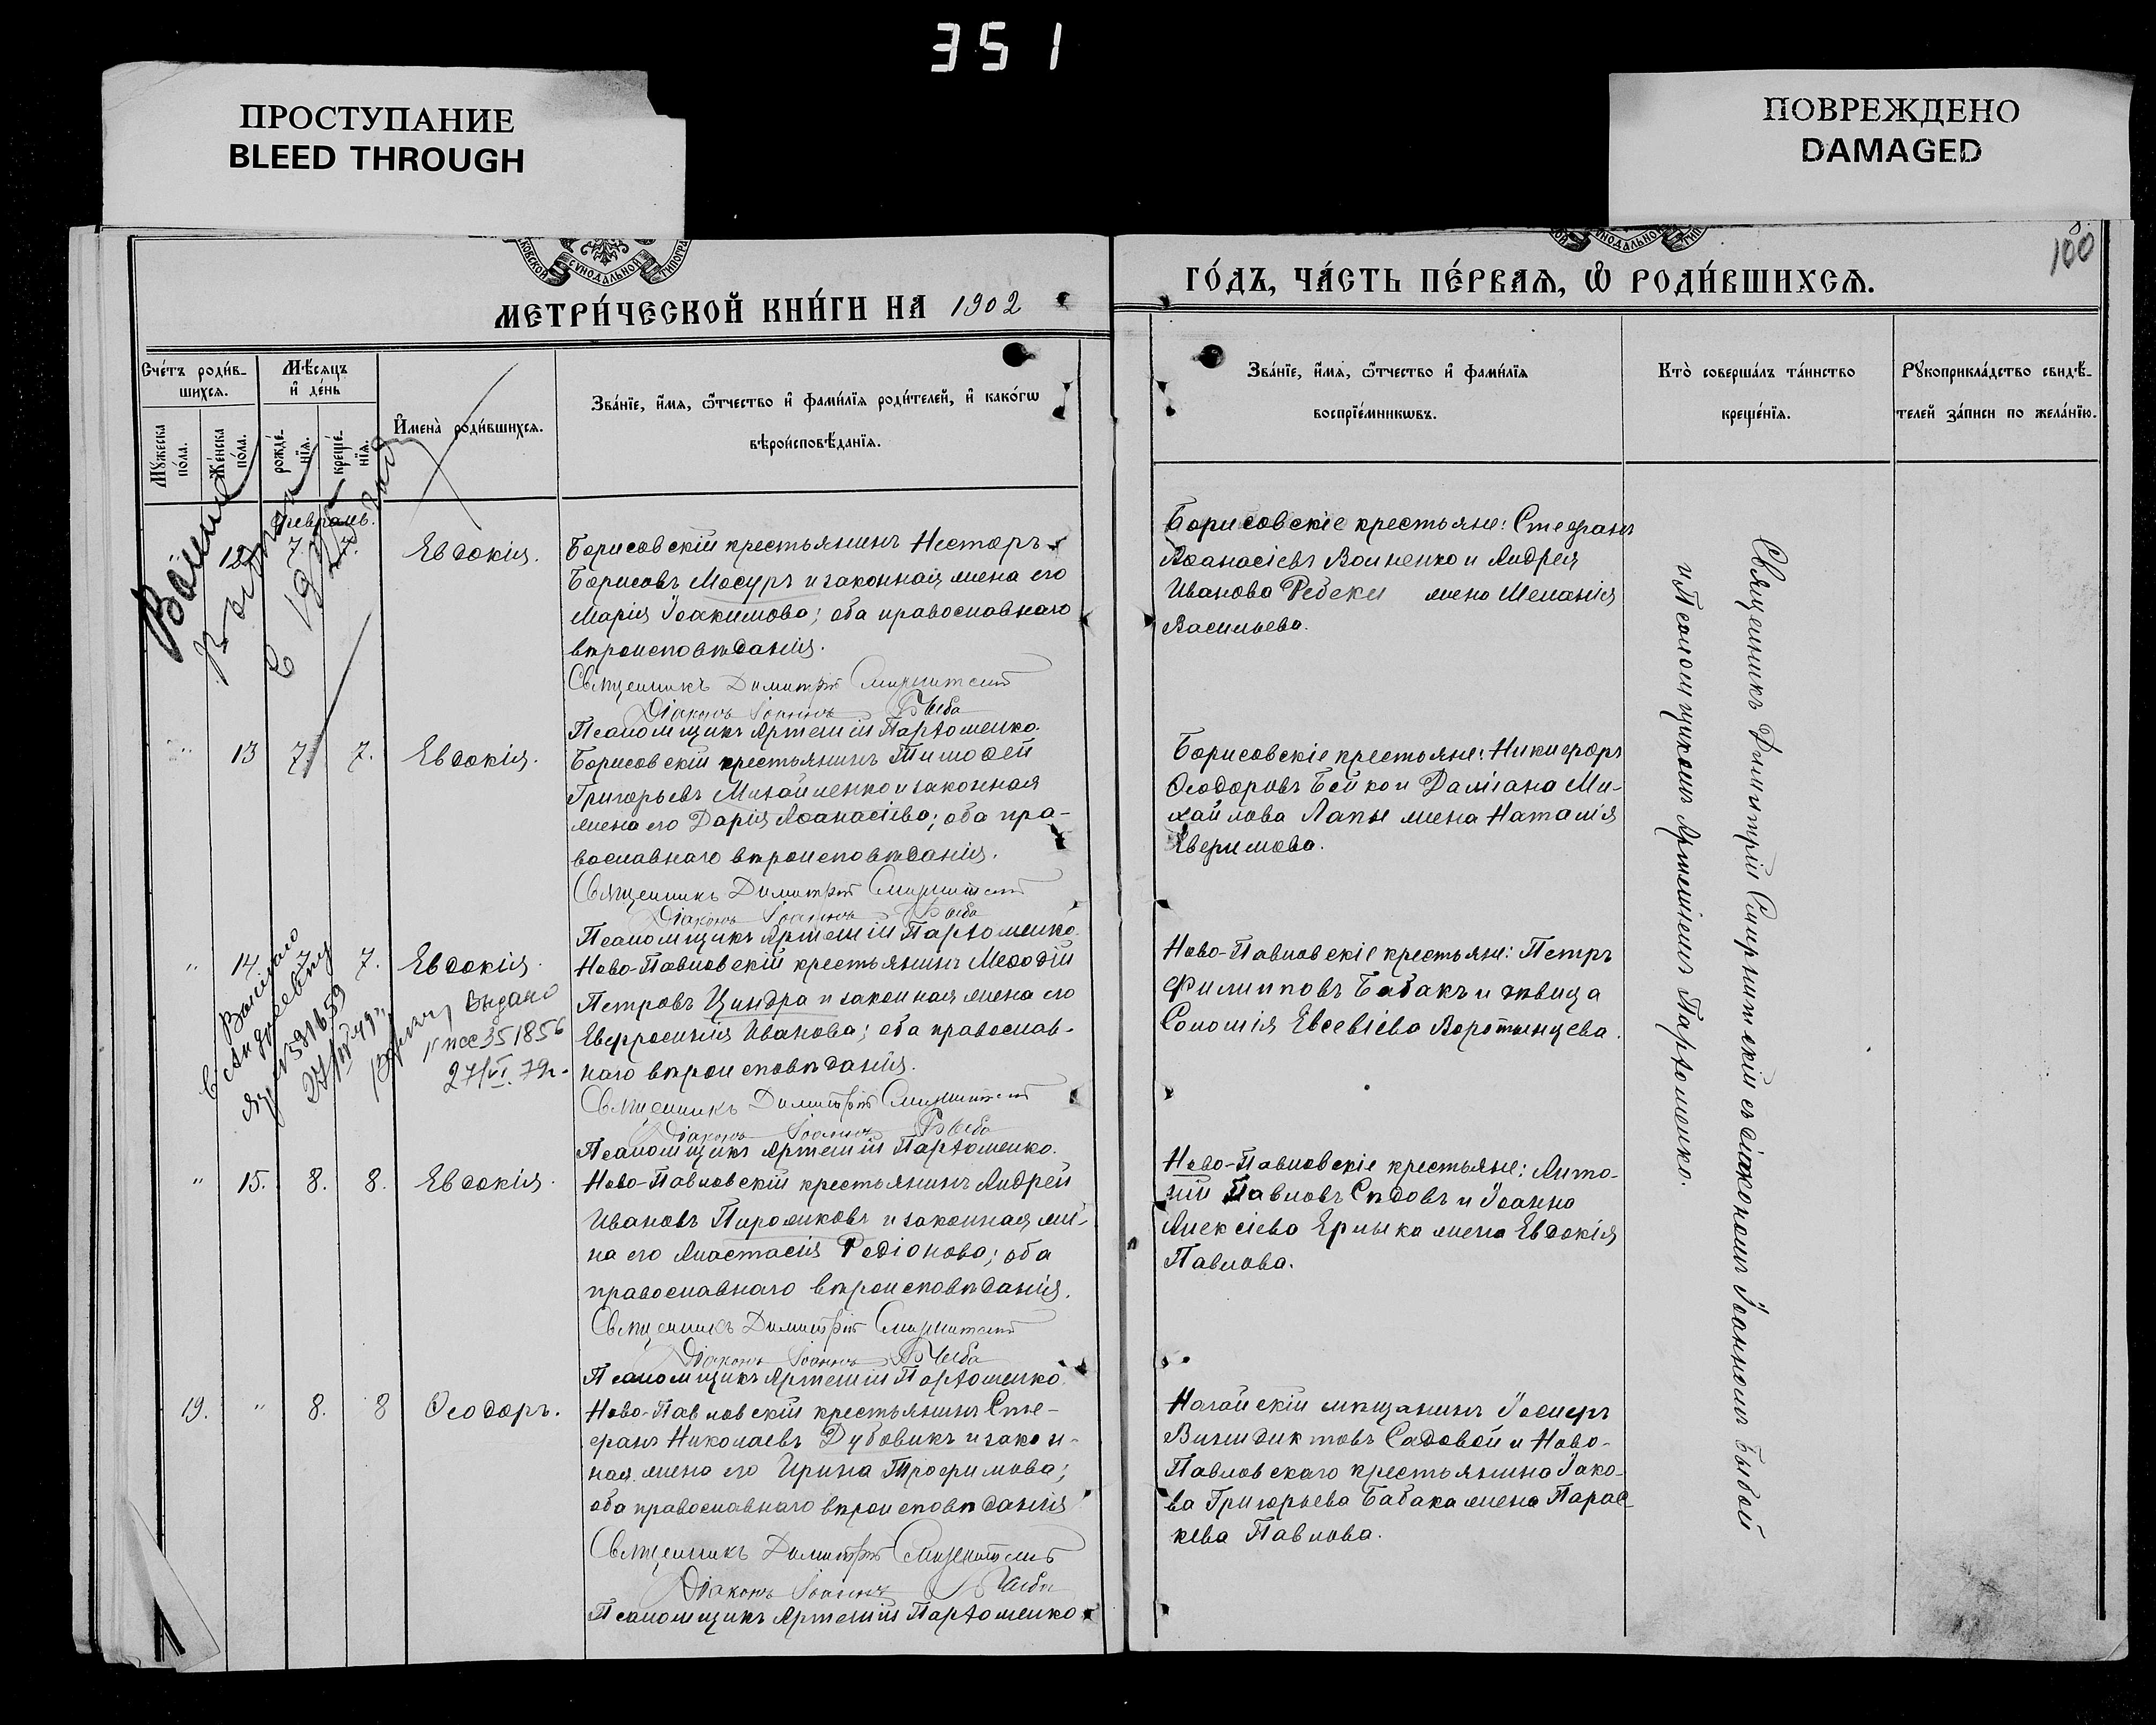 351
ПРОСТУПАНИЕ
BLEED THROUGH
ПОВРЕЖДЕНО
DAMAGED
СѴНОДАЛЬНОЙ
МЕТРИ́ЧЕСКОЙ КНИ́ГИ НА 1902
ГО́ДЪ, ЧА́СТЬ ПЕ́РВАѦ, Ѡ҆ РОДИ́ВШИХСѦ.
100
Сче́тъ роди́в-
шихсѧ.
Мѣ́сѧцъ
и҆ де́нь
Мꙋ́жеска
по́ла.
Же́нска
по́ла.
рожде́-
нїѧ.
креще́-
нїѧ.
И҆мена̀ роди́вшихсѧ.
Зва́нїе, и҆́мѧ, ѻ҆́тчество и҆ фами́лїѧ роди́телей, и҆ како́гѡ
вѣроисповѣ́данїѧ.
Зва́нїе, и҆́мѧ, ѻ҆́тчество и҆ фами́лїѧ
воспрїе́мникѡвъ.
Кто̀ соверша́лъ та́инство
креще́нїѧ.
Рꙋкоприкла́дство свидѣ́-
телей за́писи по жела́нїю.
Февраль.
12 7. 7. Евдокія.
Борисовскій крестьянинъ Несторъ
Борисовъ Мосуръ и законная жена его
Марія Іоакимова; оба православнаго
вѣроисповѣданія.
Священникъ Димитрій
Діаконъ Іоаннъ Быба
Псаломщикъ Артемій Парѳоменко.
Борисовскіе крестьяне: Стефанъ
Аѳанасіевъ Войненко и Андрея
Иванова Ребеки жена Меланія
Васильева.
" 13 7. 7. Евдокія.
Борисовскій крестьянинъ Тимоѳей
Григорьевъ Михайленко и законная
жена его Дарія Аѳанасіева; оба пра-
вославнаго вѣроисповѣданія.
Священникъ Димитрій
Діаконъ Іоаннъ Быба
Псаломщикъ Артемій Парѳоменко.
Борисовскіе крестьяне: Никифоръ
Ѳеодоровъ Бойко и Даміана Ми-
хайлова Лапы жена Наталія
Ефримова.
" 14. 7 7. Евдокія.
Ново-Павловскій крестьянинъ Меѳодій
Петровъ Циндра и законная жена его
Евфросинія Иванова; оба православ-
наго вѣроисповѣданія.
Священникъ Димитрій
Діаконъ Іоаннъ Быба
Псаломщикъ Артемій Парѳоменко.
Выдано
351856
27/VI.79г.
Ново-Павловскіе крестьяне: Петръ
Филипповъ Бабакъ и дѣвица
Соломія Евсевіева Воротынцева.
" 15. 8. 8. Евдокія.
Ново-Павловскій крестьянинъ Андрей
Ивановъ Пирожковъ и законная же-
на его Анастасія Родіонова; оба
православнаго вѣроисповѣданія.
Священникъ Димитрій
Діаконъ Іоаннъ Быба
Псаломщикъ Артемій Парѳоменко.
Ново-Павловскіе крестьяне: Анто-
ній Павловъ Сѣдовъ и Іоанна
Алексіева Ермыка жена Евдокія
Павлова.
19. " 8. 8 Ѳеодоръ.
Ново-Павловскій крестьянинъ Сте-
фанъ Николаевъ Дубовикъ и закон-
ная жена его Ирина Трофимова;
оба православнаго вѣроисповѣданія
Священникъ Димитрій
Діаконъ Іоаннъ Быба
Псаломщикъ Артемій Парѳоменко
Ногайскій мѣщанинъ Іосифъ
Венидиктовъ Садовой и Ново-
Павловскаго крестьянина Іако-
ва Григорьева Бабака жена Парас-
кева Павлова.
Священникъ Димитрій с діакономъ Іоанномъ Быбой
и Псаломщикомъ Артеміемъ Парѳоменко.